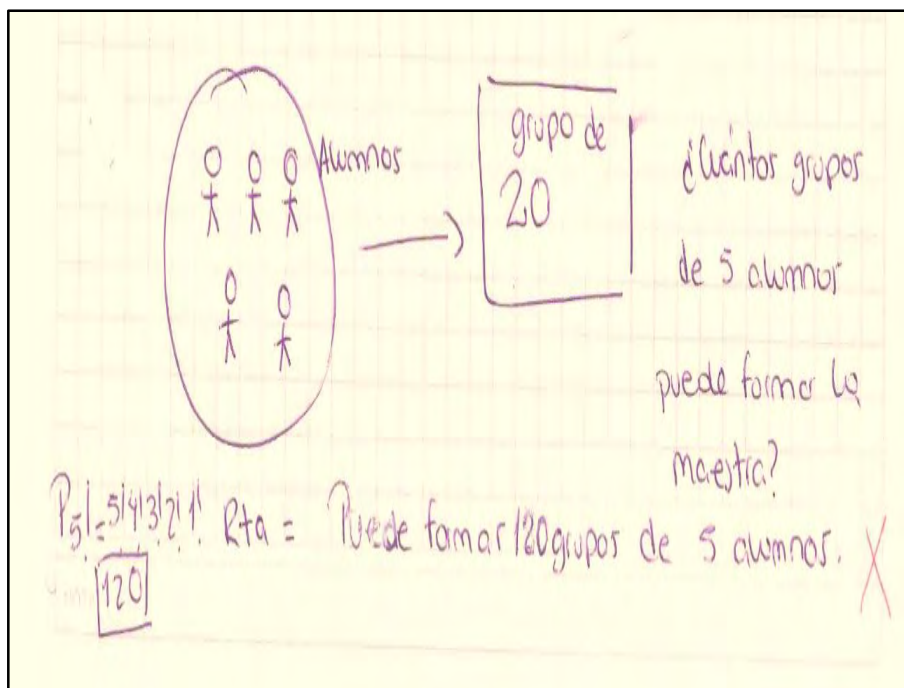 Alumnos
grupo de
20
¿Cuántos grupos
de 5 alumnor
puede formar la
maestra?
P5!=5!4!3!2!1! Rta = Puede formar 120 grupos de 5 alumnos.
120